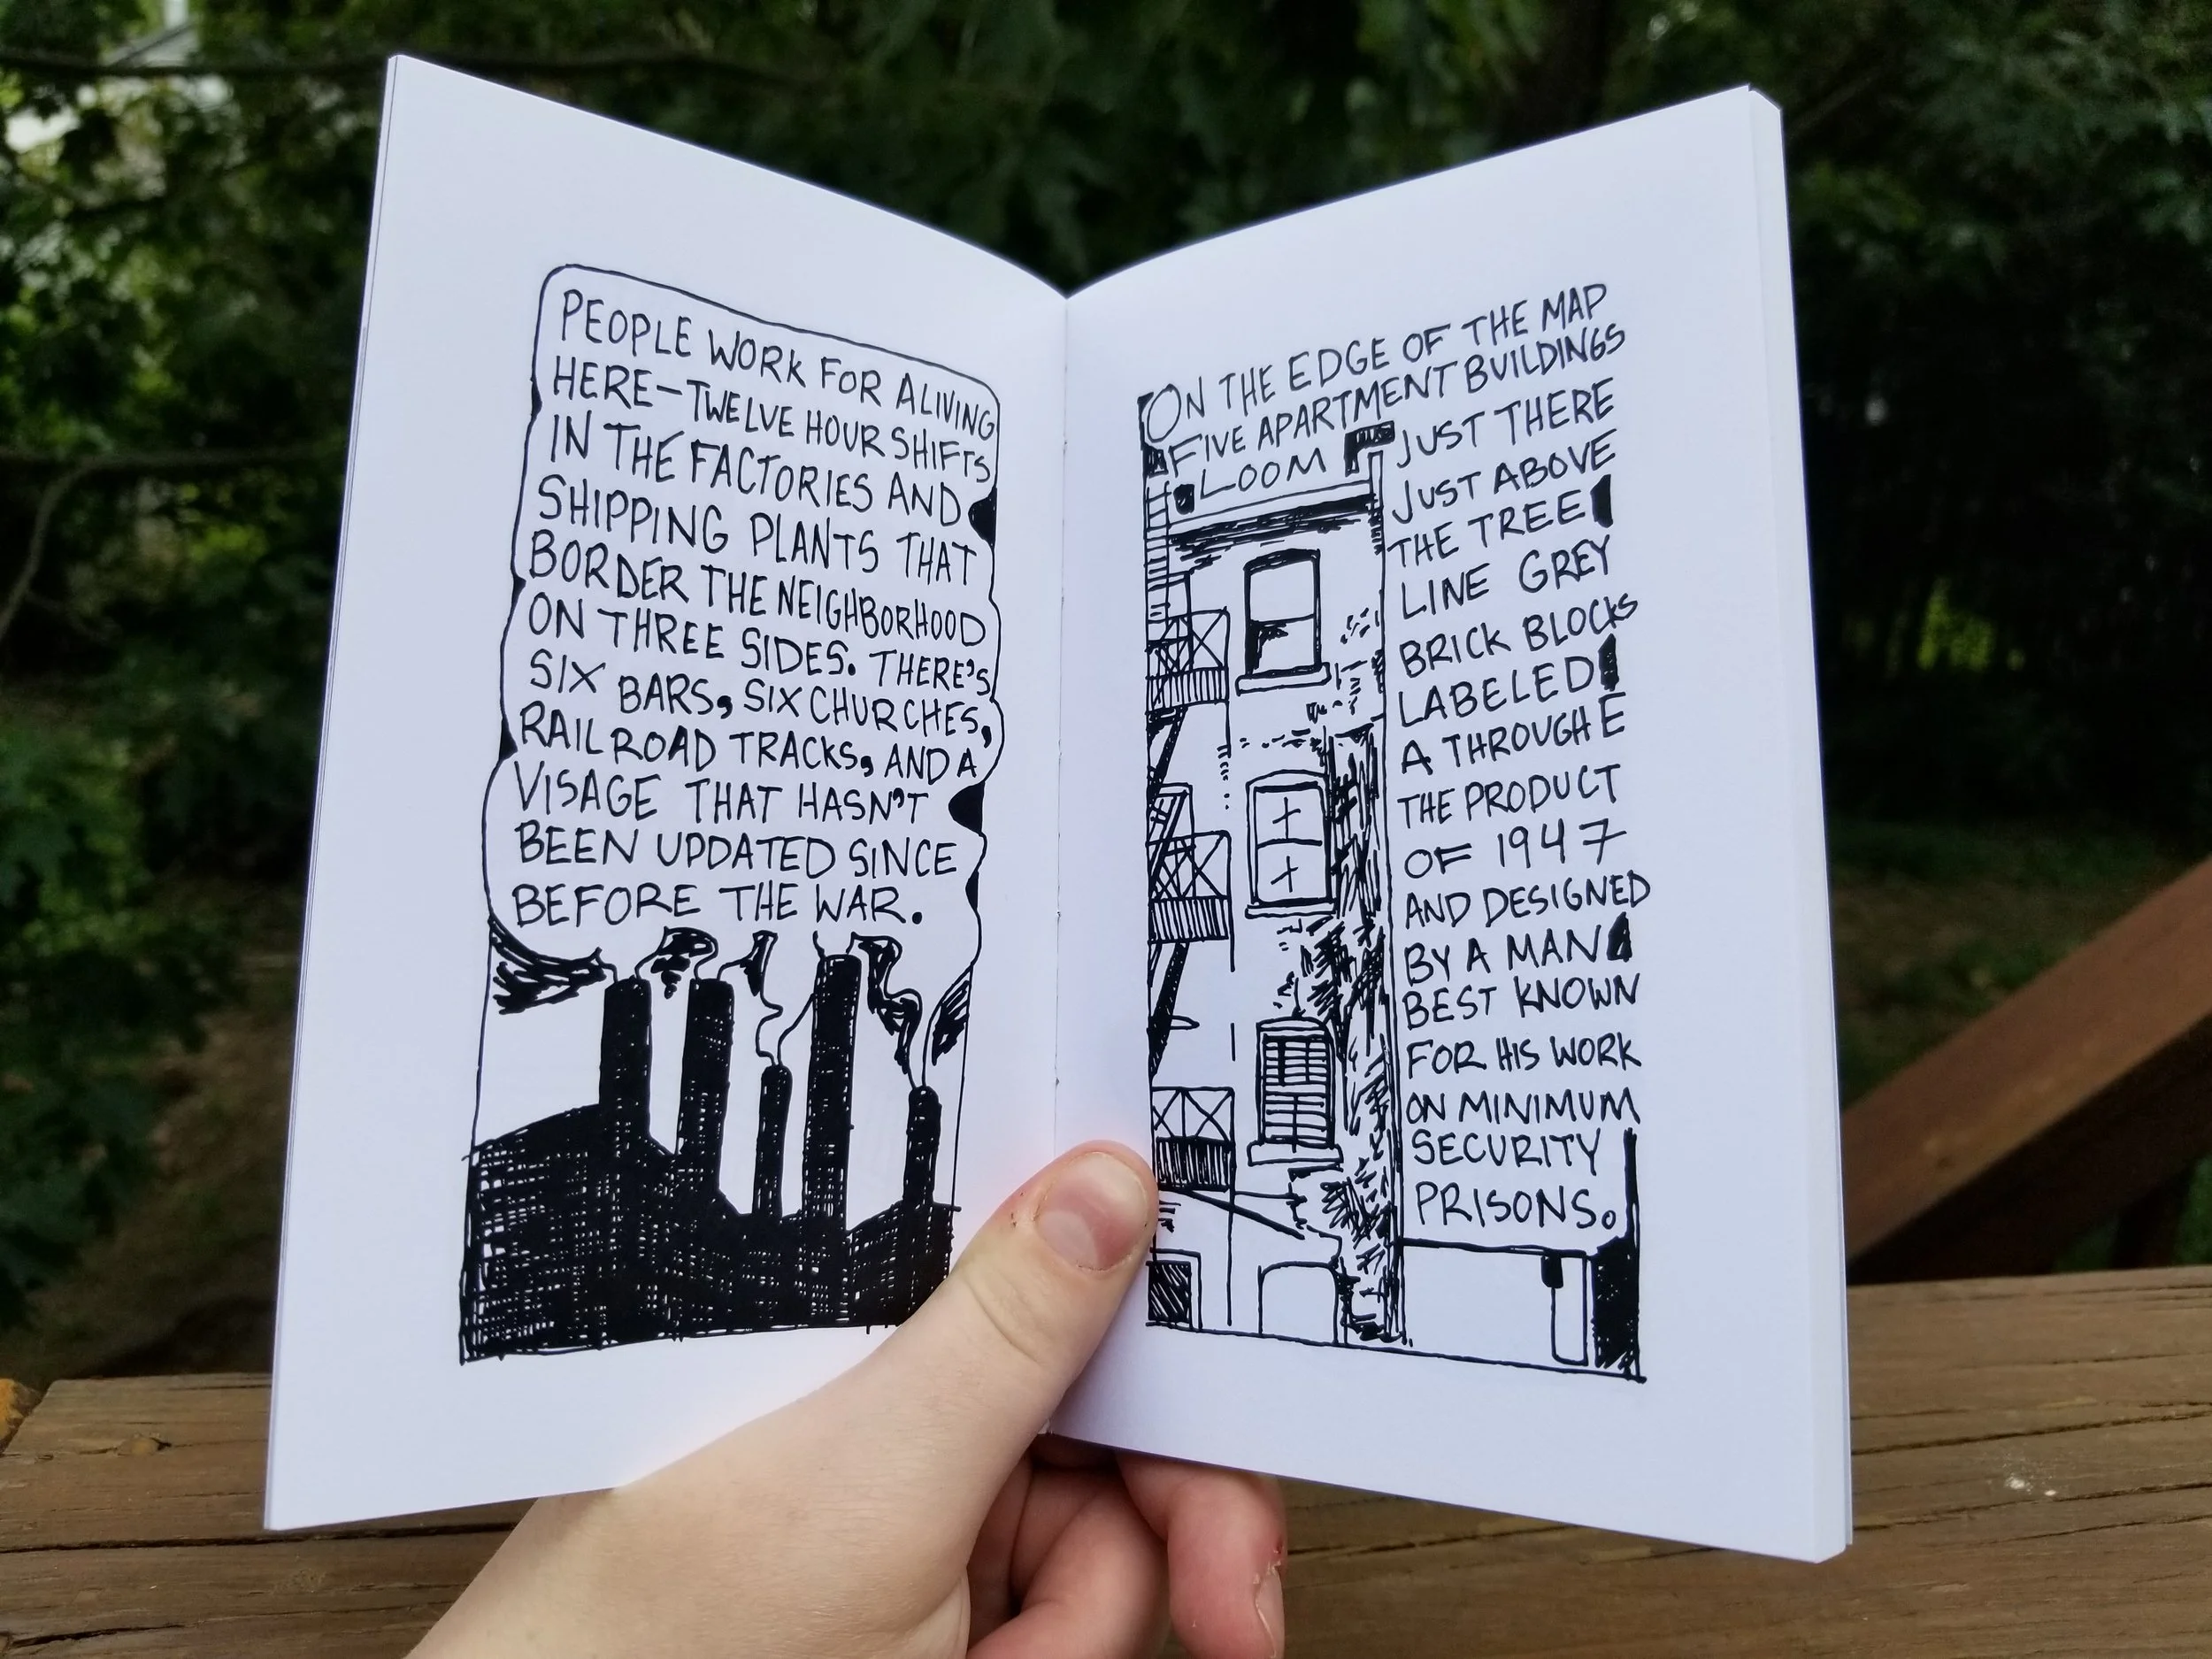 PEOPLE WORK FOR A LIVING
HERE—TWELVE HOUR SHIFTS
IN THE FACTORIES AND
SHIPPING PLANTS THAT
BORDER THE NEIGHBORHOOD
ON THREE SIDES. THERE'S
SIX BARS, SIX CHURCHES,
RAILROAD TRACKS, AND A
VISAGE THAT HASN'T
BEEN UPDATED SINCE
BEFORE THE WAR.
ON THE EDGE OF THE MAP
FIVE APARTMENT BUILDINGS
LOOM JUST THERE
JUST ABOVE
THE TREE
LINE GREY
BRICK BLOCKS
LABELED
A THROUGH E
THE PRODUCT
OF 1947
AND DESIGNED
BY A MAN
BEST KNOWN
FOR HIS WORK
ON MINIMUM
SECURITY
PRISONS.